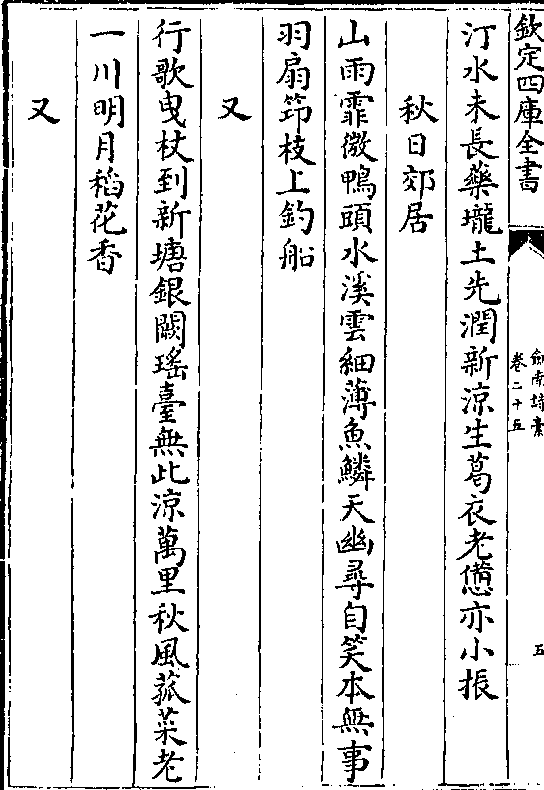 欽定四庫全書
劍南詩藁
卷二十五
五
汀水未長藥壠土先潤新涼生葛衣老憊亦小振
秋日郊居
山雨霏微鴨頭水溪雲細薄魚鱗天幽尋自笑本無事
羽扇筇枝上釣船
又
行歌曳杖到新塘銀闕瑤臺無此涼萬里秋風菰菜老
一川明月稻花香
又